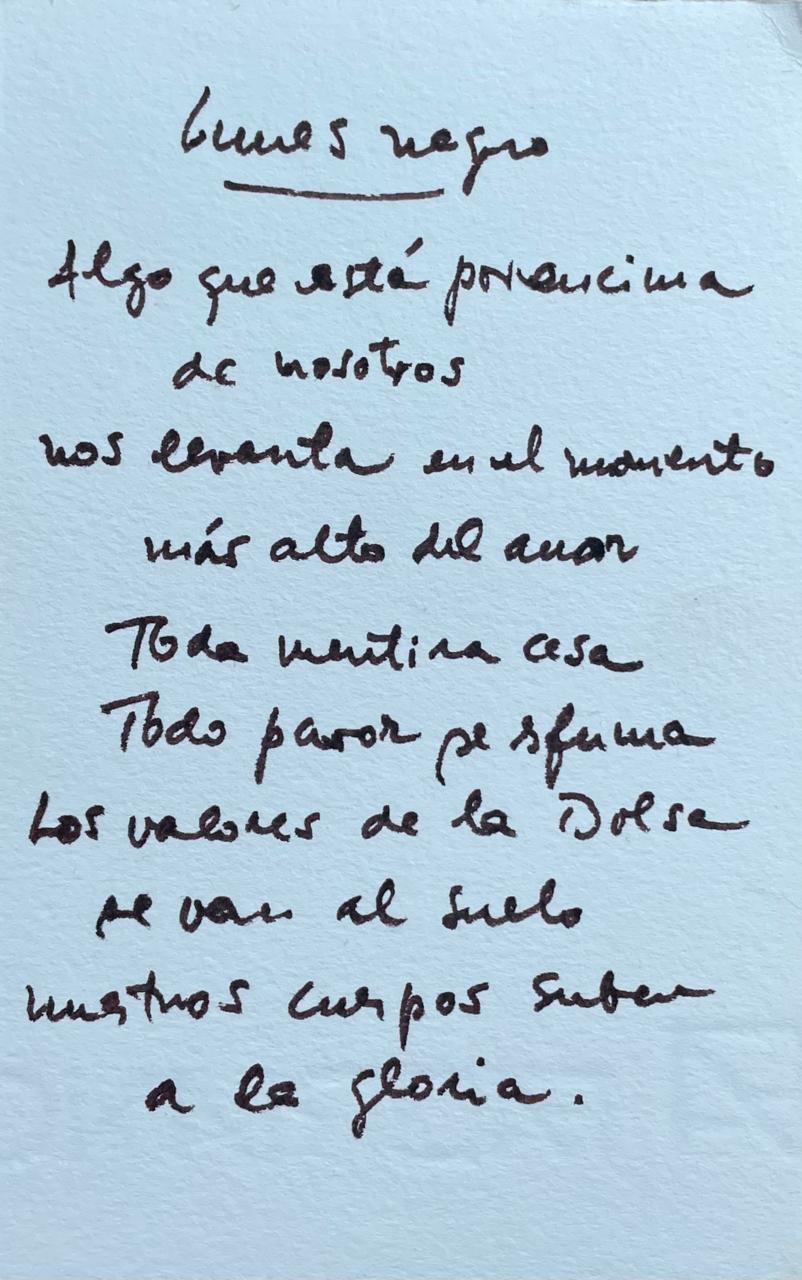 Lunes negro
Algo que está por encima
de nosotros
nos levanta en el momento
más alto del amor
Toda mentira cesa
Todo pavor se esfuma
Los valores de la Bolsa
se van al suelo
nuestros cuerpos suben
a la gloria.